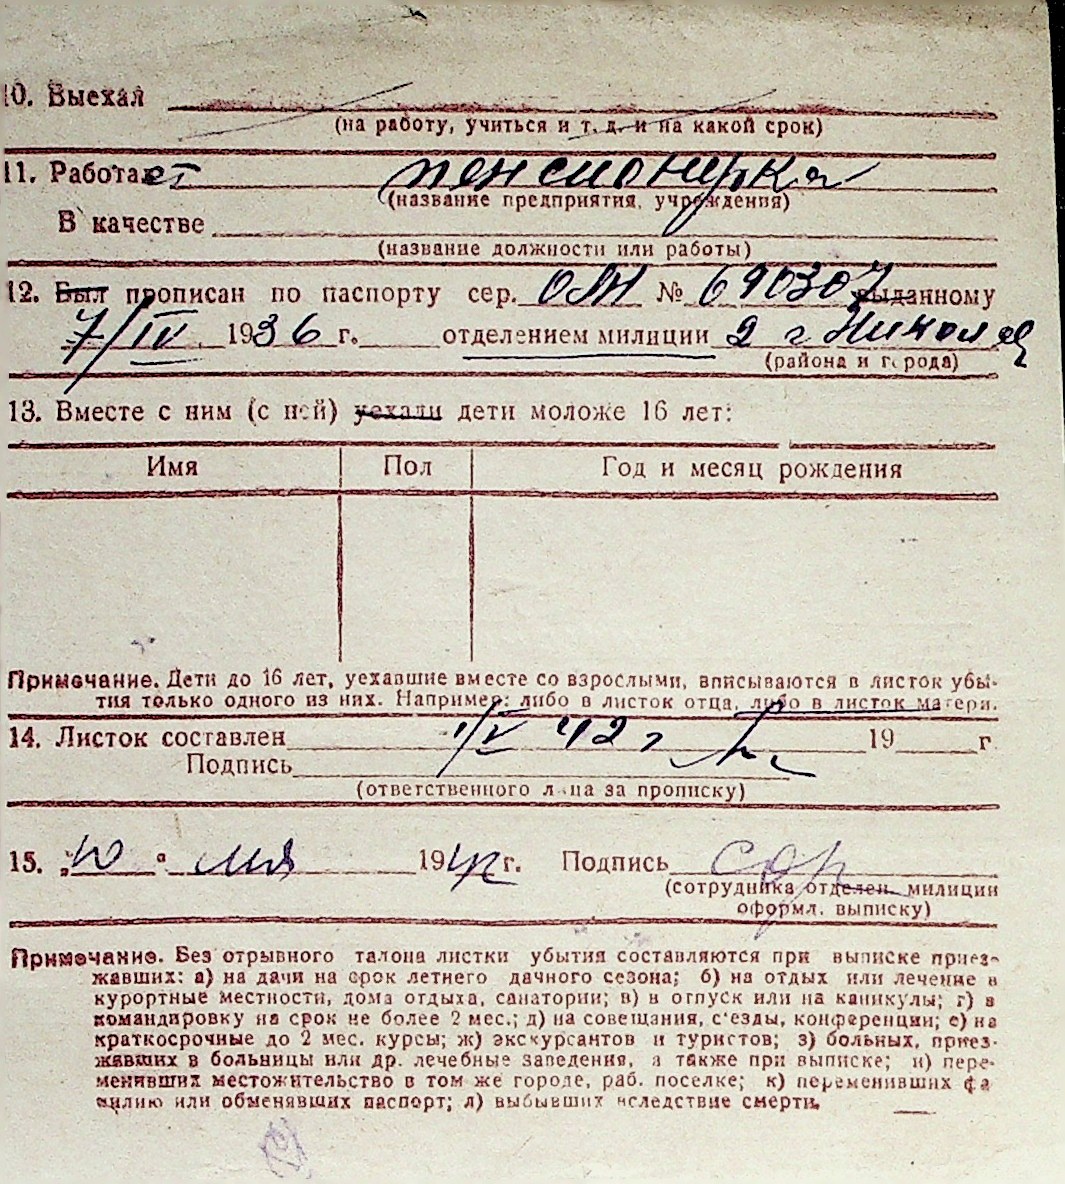 10. Выехал
(на работу, учиться и т. д. и на какой срок)
11. Работает пенсионерка
(название предприятия, учреждения)
В качестве
(название должности или работы)
12. Был прописан по паспорту сер. № 690307 выданному
7/IV 1936 г. отделением милиции 2 г Николаев
(района и города)
13. Вместе с ним (с ней) уехали дети моложе 16 лет:
Имя Пол Год и месяц рождения
Примечание. Дети до 16 лет, уехавшие вместе со взрослыми, вписываются в листок убы-
тия только одного из них. Например: либо в листок отца, либо в листок матери.
14. Листок составлен 1/V 42 г 19 г.
Подпись
(ответственного лица за прописку)
15. „10" мая 1942 г. Подпись
(сотрудника отделен. милиции
оформл. выписку)
Примечание. Без отрывного талона листки убытия составляются при выписке приез-
жавших: а) на дачи на срок летнего дачного сезона; б) на отдых или лечение в
курортные местности, дома отдыха, санатории; в) в отпуск или на каникулы; г) в
командировку на срок не более 2 мес.; д) на совещания, с'езды, конференции; е) на
краткосрочные до 2 мес. курсы; ж) экскурсантов и туристов; з) больных, приез-
жавших в больницы или др. лечебные заведения, а также при выписке; и) пере-
менивших местожительство в том же городе, раб. поселке; к) переменивших фа
милию или обменявших паспорт; л) выбывших вследствие смерти.